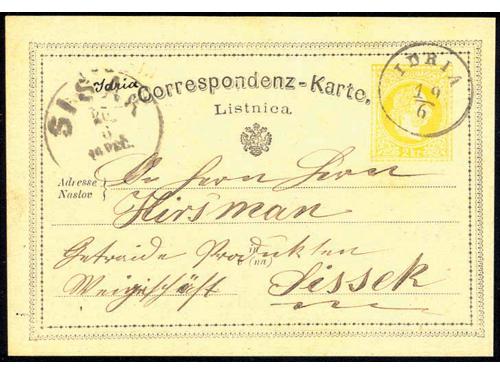 Idria
Correspondenz-Karte.
Listnica.
IDRIA
19/6
Adresse
Naslov
Herrn Herrn
Hirsman
Getraide Produkten
in
(na)
Weigeschäft Sissek